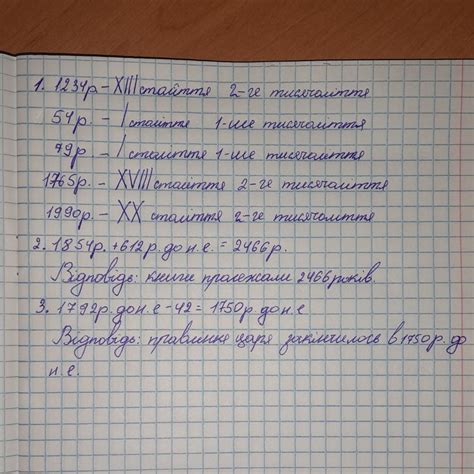 1. 1234р - XIII століття 2-ге тисячоліття
54р. - I століття 1-ше тисячоліття
79р. - I століття 1-ше тисячоліття
1765р. - XVIII століття 2-ге тисячоліття
1990р. - XX століття 2-ге тисячоліття
2. 1854р. + 612р. до н.е. = 2466р.
Відповідь: книги пролежали 2466 років.
3. 1792р. до н.е - 42 = 1750р. до н.е
Відповідь: правління царя закінчилось в 1750р. до
н.е.